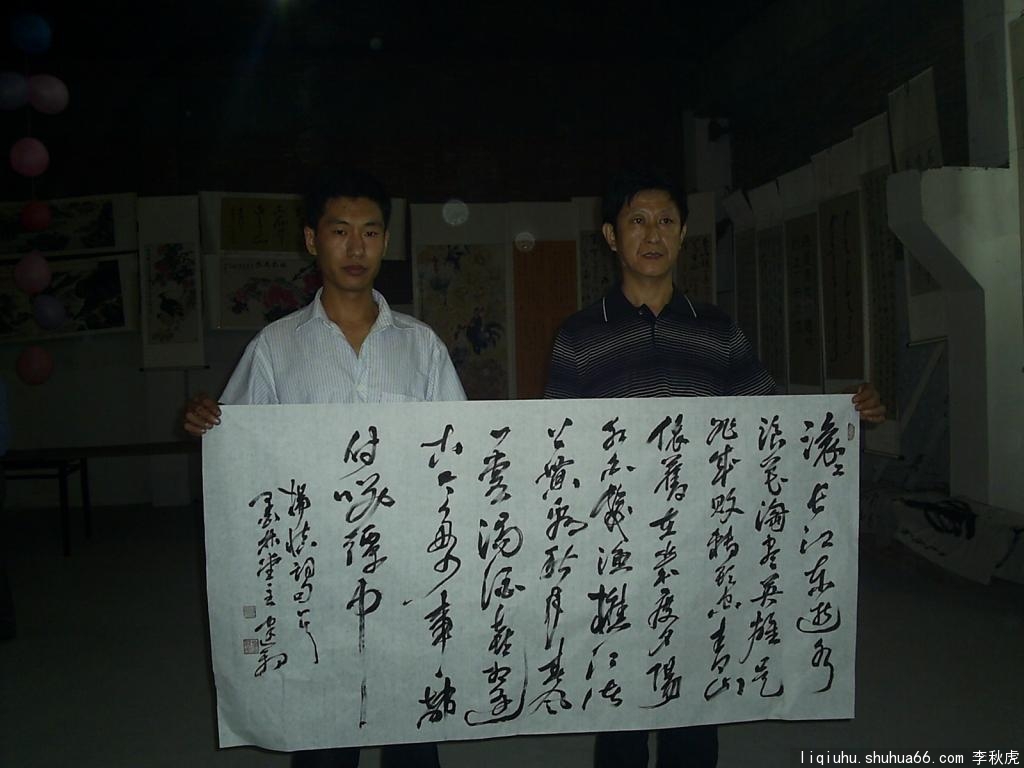 滚滚长江东逝水
浪花淘尽英雄是
非成败转头空青山
依舊在几度夕陽
红白髮渔樵江渚
上惯看秋月春风
一壶浊酒喜相逢
古今多少事都
付笑谭中
楊慎詞
墨林堂主
liqiuhu.shuhua66.com 李秋虎